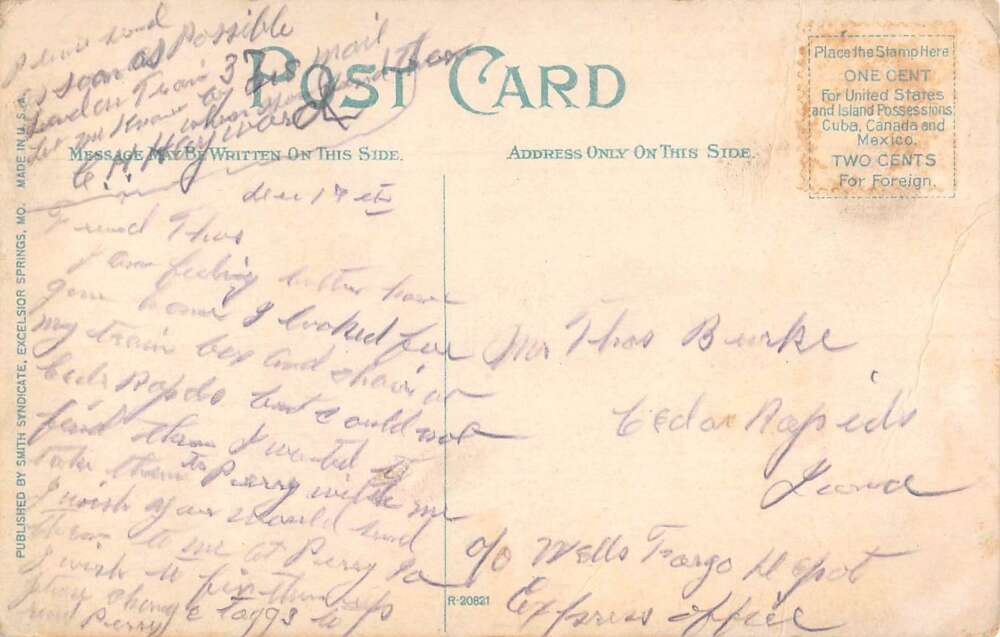 Please send
as soon as Possible
send on Train 37
Let me Know by mail
when you send them
C. H. Heyward
POST CARD
MESSAGE MAY BE WRITTEN ON THIS SIDE.
ADDRESS ONLY ON THIS SIDE.
Place the Stamp Here
ONE CENT
For United States
and Island Possessions,
Cuba, Canada and
Mexico.
TWO CENTS
For Foreign.
PUBLISHED BY SMITH SYNDICATE, EXCELSIOR SPRINGS, MO. MADE IN U.S.A.
Dec 17 th
Friend Thos
I am feeling better have
gone home I looked for
my train box and chair at
Ceder Rapids but could not
find them I wanted to
take them to Perry with me
I wish you would send
them to me at Perry Ia
I wish to fix them up
please change taggs to
read Perry
Mr Thos Burke
Cedar Rapids
Iowa
c/o Wells Fargo Depot
Express office
R-20821